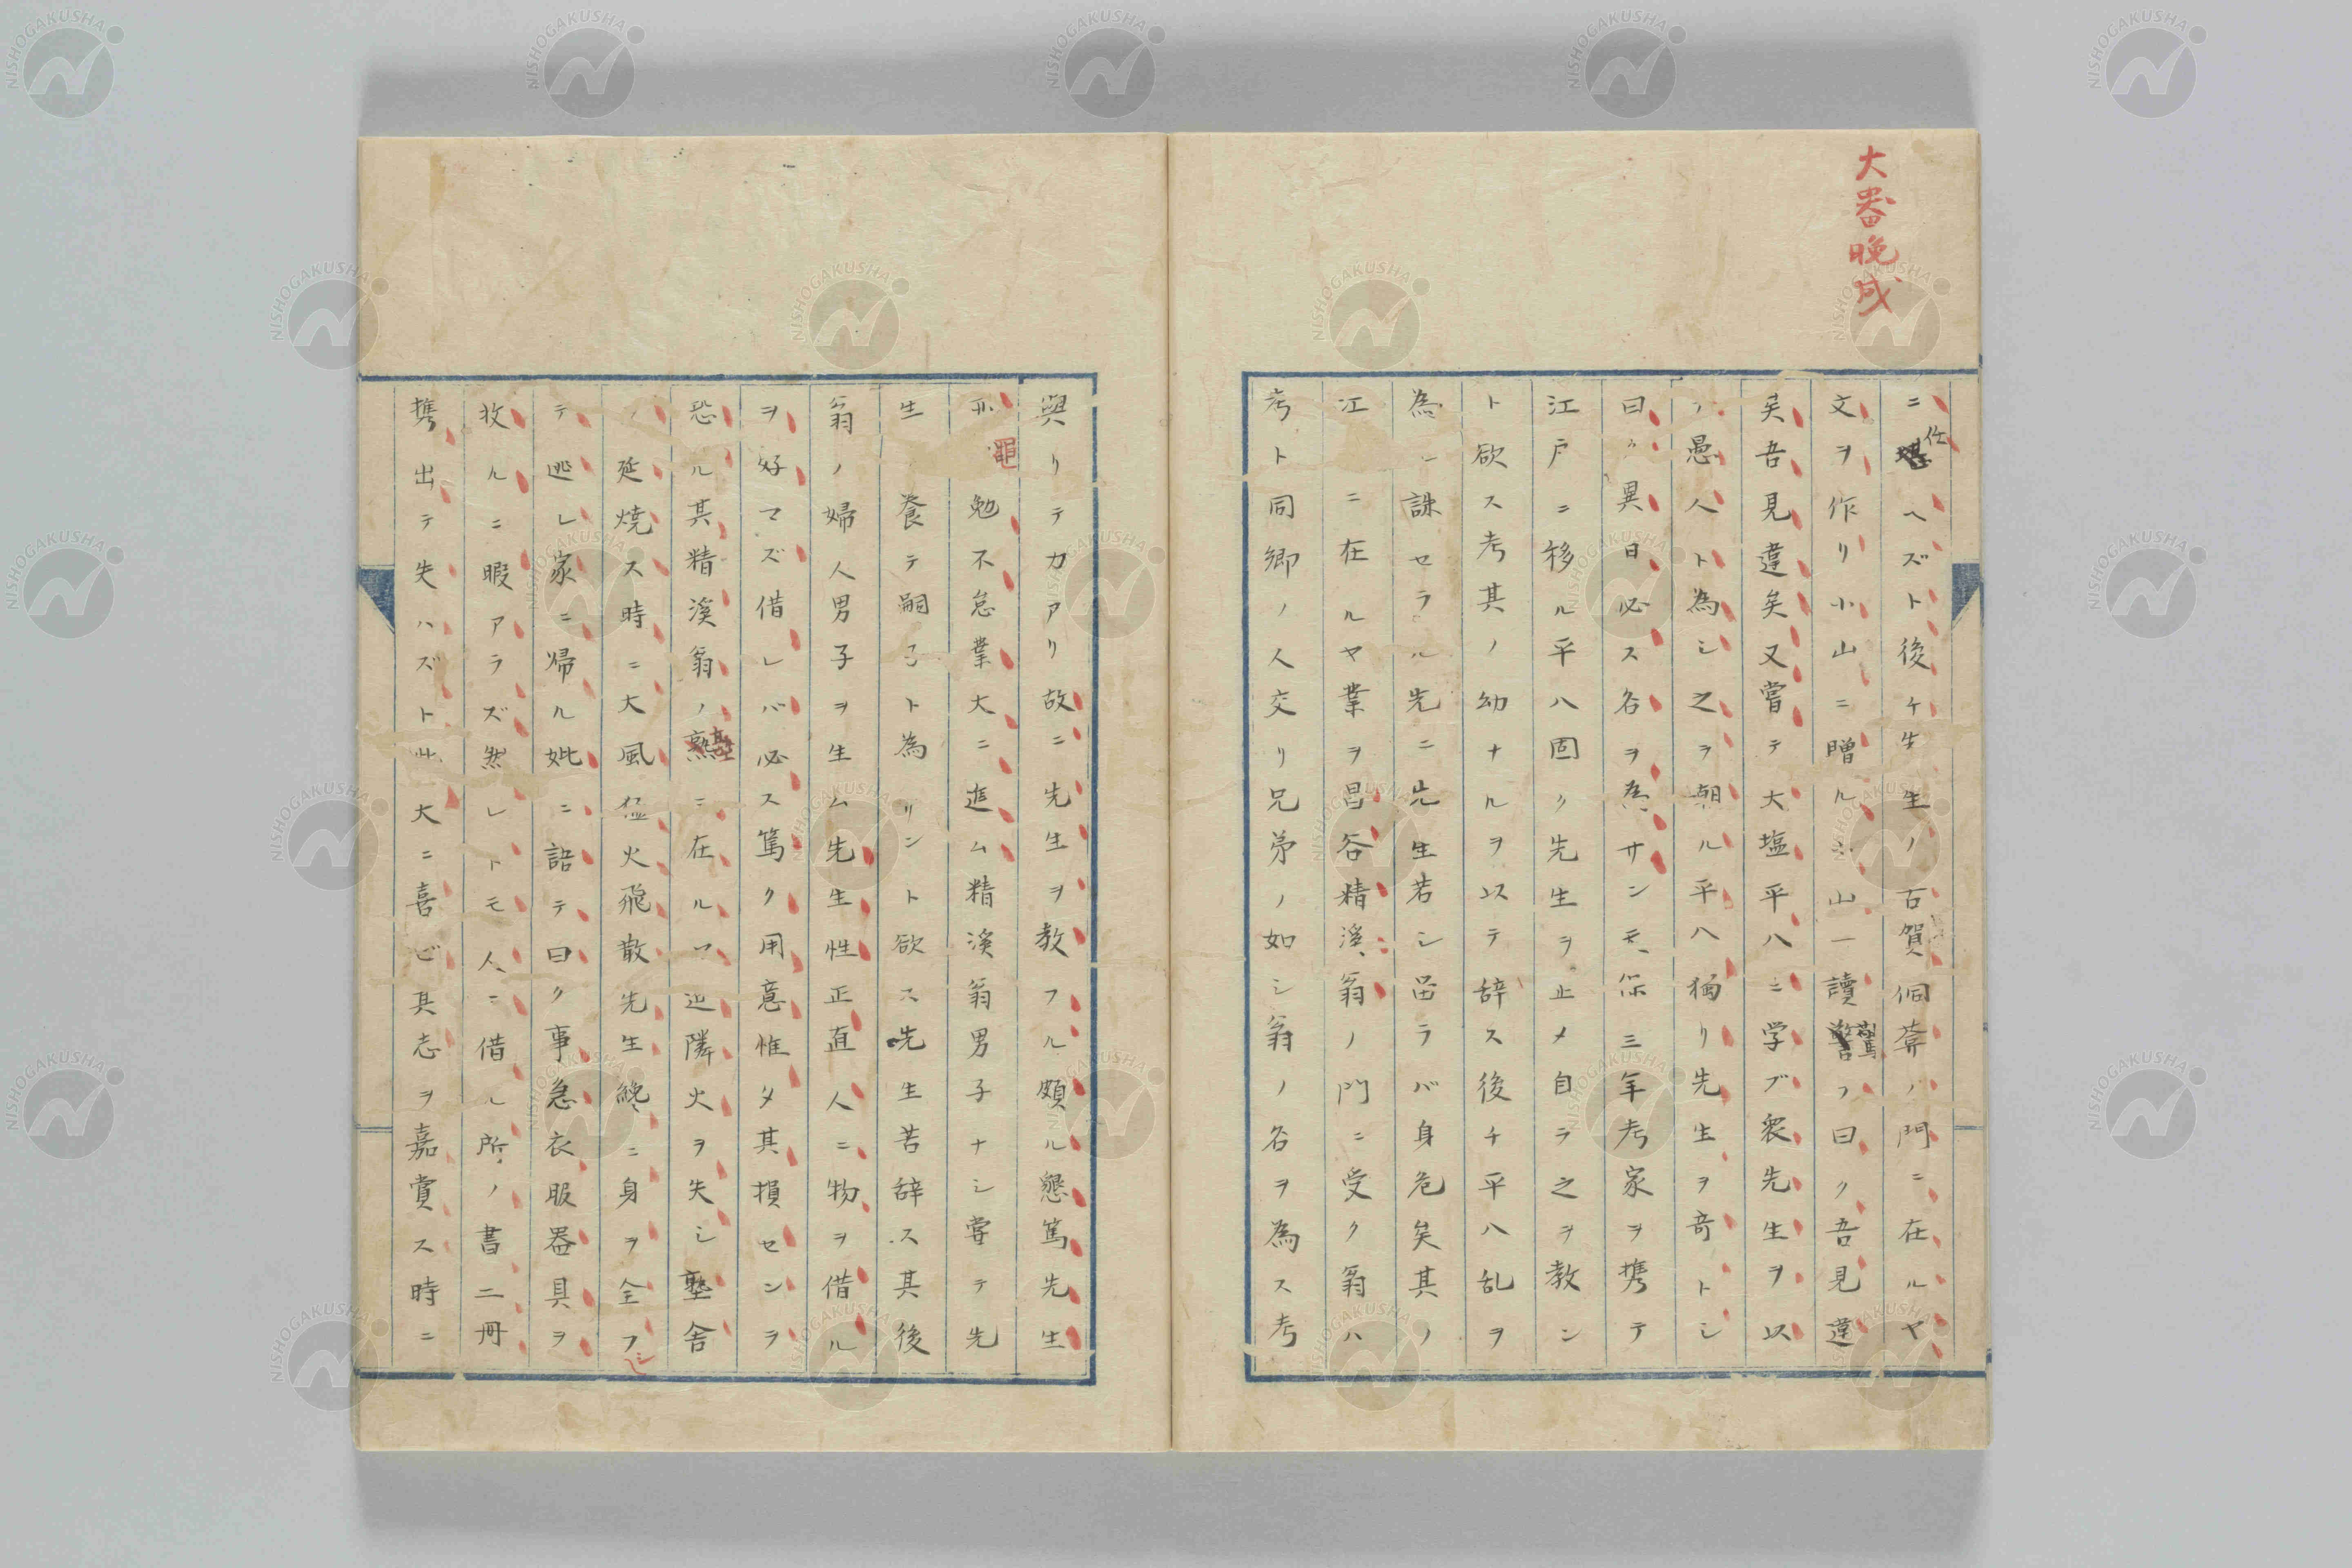 大器晩成
ニ仕ヘズト後ケ先生ノ古賀侗菴ノ門ニ在ルヤ
文ヲ作リ小山ニ贈ル小山一讀驚フ曰ク吾見違
矣吾見違矣又嘗テ大塩平八ニ学ブ衆先生ヲ以
ノ愚人ト為シ之ヲ嘲ル平八獨リ先生ヲ奇トシ
曰ク異日必ス名ヲ為サン天保三年考家ヲ携テ
江戸ニ移ル平八固ク先生ヲ止メ自ラ之ヲ教ン
ト欲ス考其ノ幼ナルヲ以テ辞ス後チ平八乱ヲ
為ニ誅セラル先ニ先生若シ留ラバ身危矣其ノ
江ニ在ルヤ業ヲ昌谷精溪翁ノ門ニ受ク翁ハ
考ト同郷ノ人交リ兄弟ノ如シ翁ノ名ヲ為ス考
與リテカアリ故ニ先生ヲ教フル頗ル懇篤先生
亦黽勉不怠業大ニ進ム精溪翁男子ナシ嘗テ先
生養テ嗣子ト為リント欲ス先生苦辞ス其後
翁ノ婦人男子ヲ生ム先生性正直人ニ物ヲ借ル
ヲ好マズ借レバ必ス篤ク用意惟タ其損センヲ
恐ル其精溪翁ノ塾ニ在ルヤ近隣火ヲ失シ塾舎
ノ延焼ス時ニ大風猛火飛散先生纔ニ身ヲ全フシ
テ逃レ家ニ帰ル妣ニ語テ曰ク事急衣服器具ヲ
收ルニ暇アラズ然レトモ人ニ借ル所ノ書二冊
携出テ失ハズト妣大ニ喜ビ其志ヲ嘉賞ス時ニ
NISHOGAKUSHA